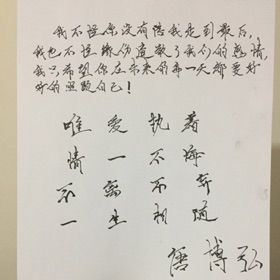 我不怪你没有陪我走到最后，
我也不怪缘份遣散了我们的情，
我只希望你在未来的每一天都要好
好的照顾自己！
唯爱执着
情一不悔
不离不弃
一生相随
唐博弘